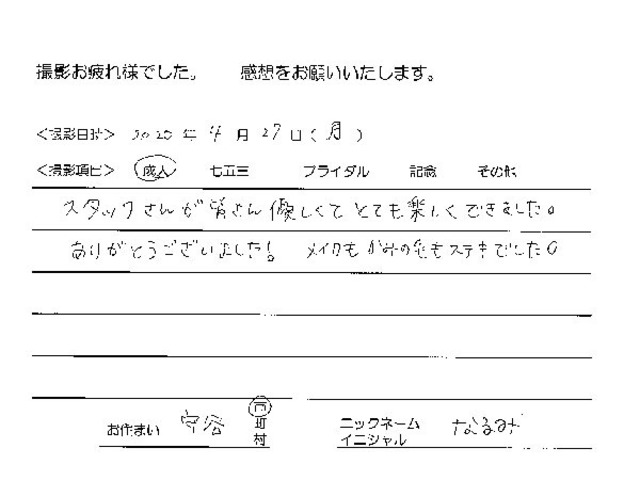 撮影お疲れ様でした。 感想をお願いいたします。
<撮影日時> 2020 年 4 月 27 日 ( 月 )
<撮影項目> 成人 七五三 ブライダル 記念 その他
スタッフさんが皆さん優しくてとても楽しくできました。
ありがとうございました! メイクもかみの毛もステキでした。
お住まい 守谷 市 町 村 ニックネーム イニシャル なるみ